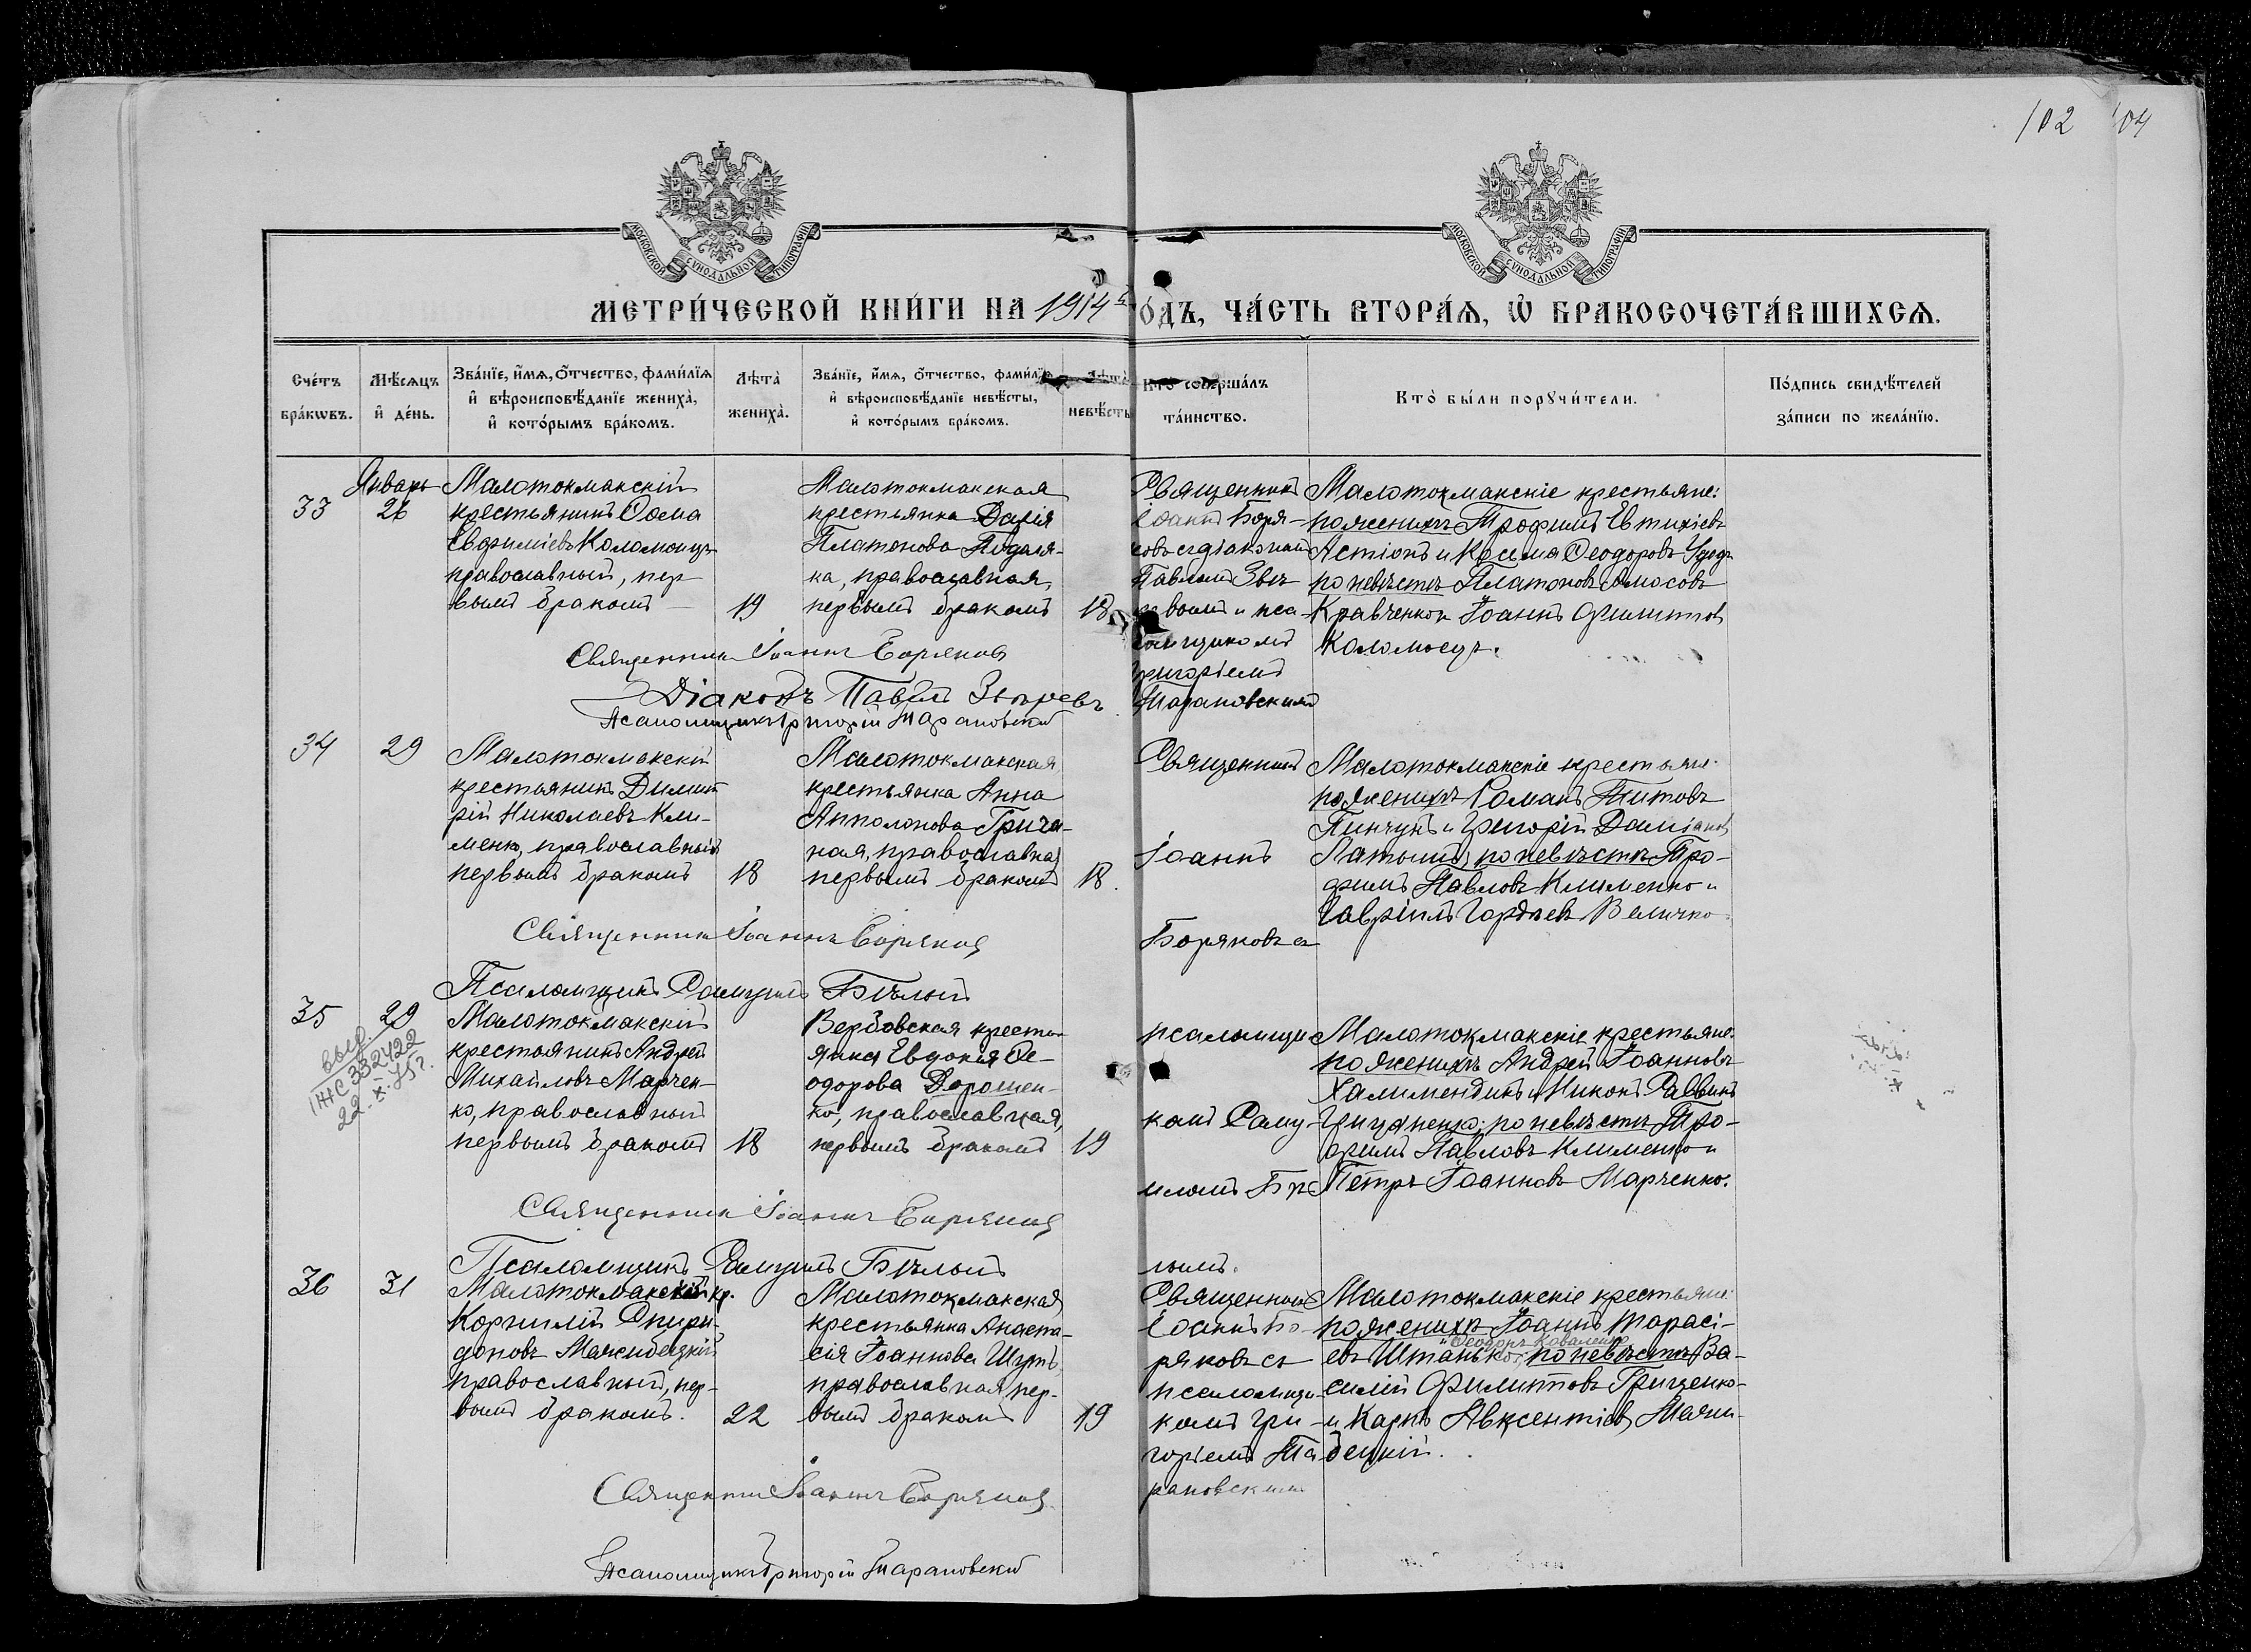 102 104
МОСКОВСКОЙ СѴНОДАЛЬНОЙ ТИПОГРАФІИ
МОСКОВСКОЙ СѴНОДАЛЬНОЙ ТИПОГРАФІИ
МЕТРИ́ЧЕСКОЙ КНИ́ГИ НА 1914 ГО́ДЪ, ЧА́СТЬ ВТОРА́Ѧ, Ѽ БРАКОСОЧЕТА́ВШИХСѦ.
Сче́тъ бра́кѡвъ.
Мѣ́сѧцъ и҆ де́нь.
Зва́нїе, и҆́мѧ, ѻ҆́тчество, фами́лїѧ
и҆ вѣроисповѣ́данїе жениха̀,
и҆ кото́рымъ бра́комъ.
Лѣта̀ жениха̀.
Зва́нїе, и҆́мѧ, ѻ҆́тчество, фами́лїѧ
и҆ вѣроисповѣ́данїе невѣ́сты,
и҆ кото́рымъ бра́комъ.
Лѣта̀ невѣ́сты
Кто̀ соверша́лъ
та́инство.
Кто̀ бы́ли порꙋчи́тели.
По́дпись свидѣ́телей
за́писи по жела́нїю.
33
Январь
26
Малотокмакскій
крестьянинъ Ѳома
Евфиміевъ Коломоецъ
православный, пер-
вымъ бракомъ
19
Малотокмакская
крестьянка Дарія
Платонова
ка, православная,
первымъ бракомъ
18
Священникъ
Іоаннъ Боря-
ковъ съ діакономъ
Павломъ Звѣ-
ревымъ и пса-
ломщикомъ
Григоріемъ
Тарановскимъ
Малотокмакскіе крестьяне:
по женихѣ Трофимъ Евтихіевъ
и Косьма Ѳеодоровъ
по невѣстѣ Платонъ Амосовъ
Кравченко и Іоаннъ Филиповъ
Коломоецъ.
Священникъ Іоаннъ Боряковъ
Діаконъ Павелъ Звѣревъ
Псаломщикъ Григорій Тарановскій
34
29
Малотокмакскій
крестьянинъ Димит-
рій Николаевъ Кли-
менко, православный
первымъ бракомъ
18
Малотокмакская
крестьянка Анна
Апполонова Грича-
ная, православная
первымъ бракомъ
18.
Священникъ
Іоаннъ
Боряковъ съ
Малотокмакскіе крестьяне:
по женихѣ Романъ Титовъ
Пинчукъ и Григорій Даміановъ
по невѣстѣ Тро-
фимъ Павловъ Клименко и
Гавріилъ Гордѣевъ Величко.
Священникъ Іоаннъ Боряковъ
Псаломщикъ Самуилъ Бѣлый
35
29
выд
ІЖС 332422
22.X.75г.
Малотокмакскій
крестьянинъ Андрей
Михайловъ Марчен-
ко, православный
первымъ бракомъ
18
Вербовская кресть-
янка Евдокія Ѳе-
одорова Дорошен-
ко, православная,
первымъ бракомъ
19
псаломщи-
комъ Саму-
иломъ Бѣ-
лымъ.
Малотокмакскіе крестьяне:
по женихѣ Андрей Іоанновъ
Халимендикъ и Никонъ Саввинъ
Гриценко; по невѣстѣ Тро-
фимъ Павловъ Клименко и
Петръ Іоанновъ Марченко.
Священникъ Іоаннъ Боряковъ
Псаломщикъ Самуилъ Бѣлый
36
31
Малотокмакскій кр.
Корнилій Спири-
доновъ Мажибецкій
православный, пер-
вымъ бракомъ.
22
Малотокмакская
крестьянка Анаста-
сія Іоаннова Шутъ,
православная пер-
вымъ бракомъ
19
Священникъ
Іоаннъ Бо-
ряковъ съ
псаломщи-
комъ Гри-
горіемъ Та-
рановскимъ
Малотокмакскіе крестьяне:
по женихѣ Іоаннъ Тарасі-
и Ѳеодоръ Коваленко
евъ Штанько; по невѣстѣ Ва-
силій Филиповъ Гриценко
и Карпъ Авксентіевъ Мажи-
бецкій.
Священникъ Іоаннъ Боряковъ
Псаломщикъ Григорій Тарановскій